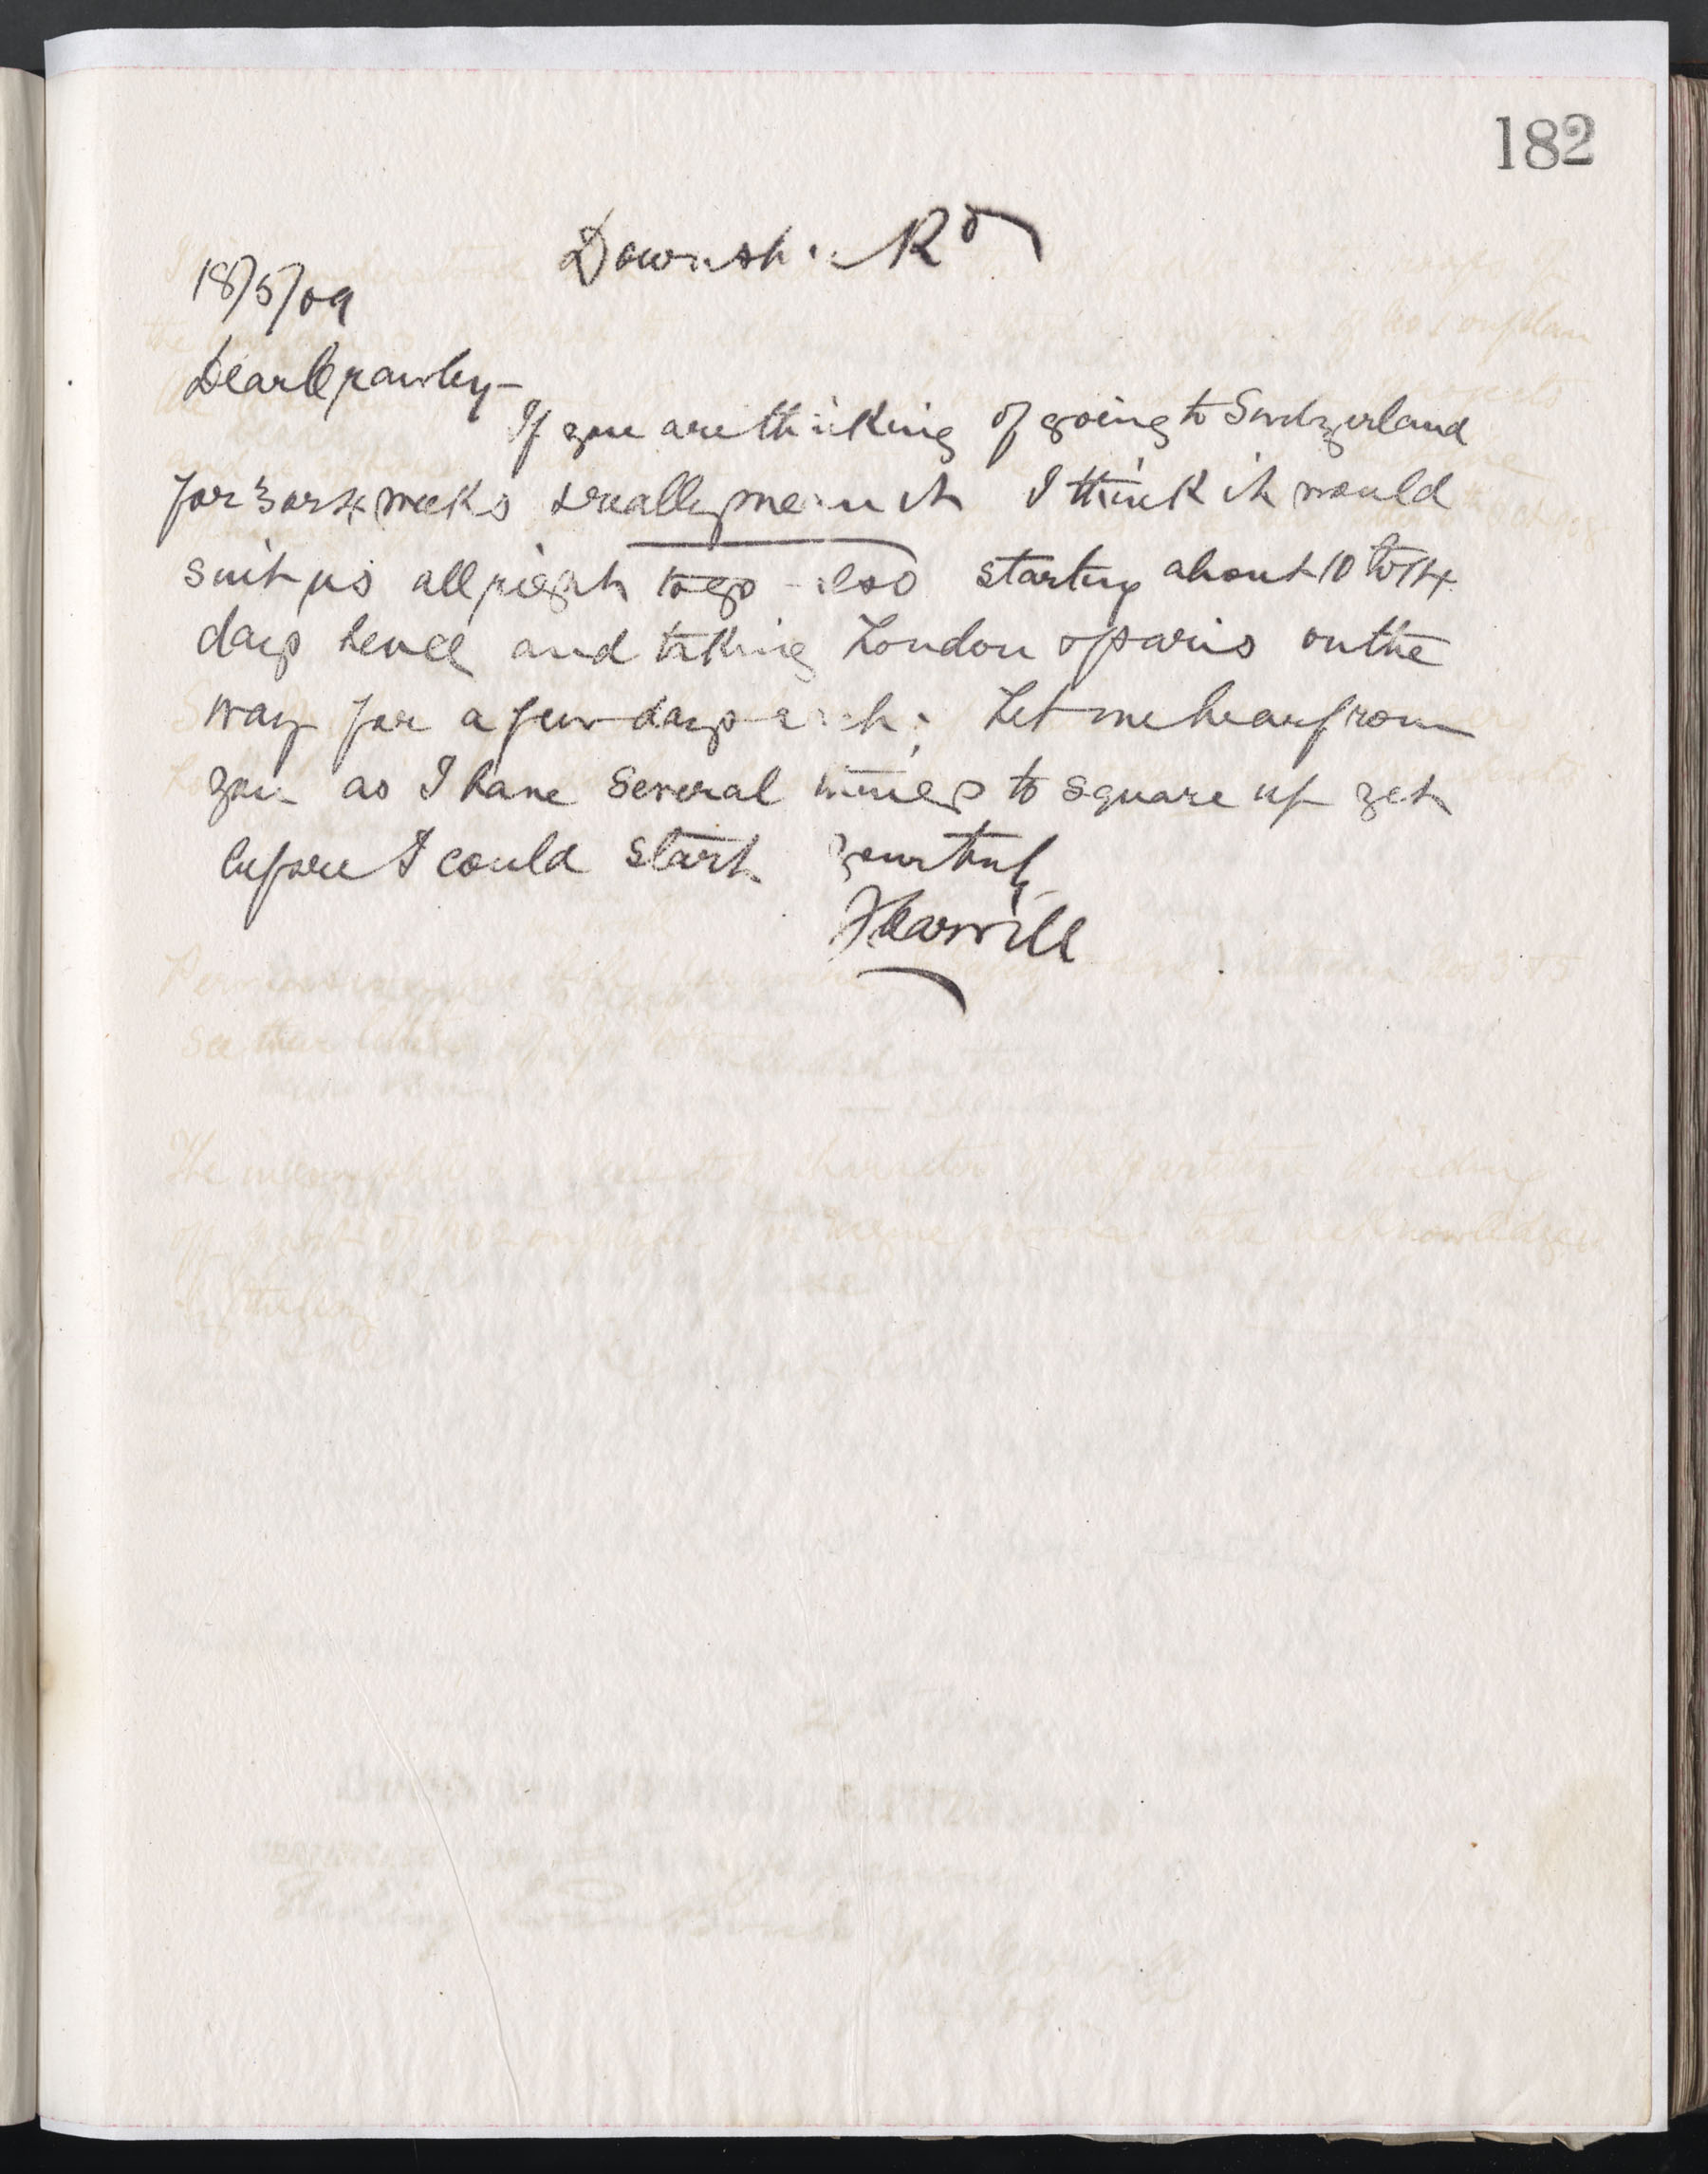 182
Downsh. Rd
18/5/09
Dear Crawley-
If you are thinking of going to Switzerland
for 3 or 4 weeks & really mean it I think it would
suit us all right to go also starting about 10 to 14
days hence and taking London & Paris on the
way for a few days each; Let me hear from
you as I have several to square up yet
before I could start yours truly